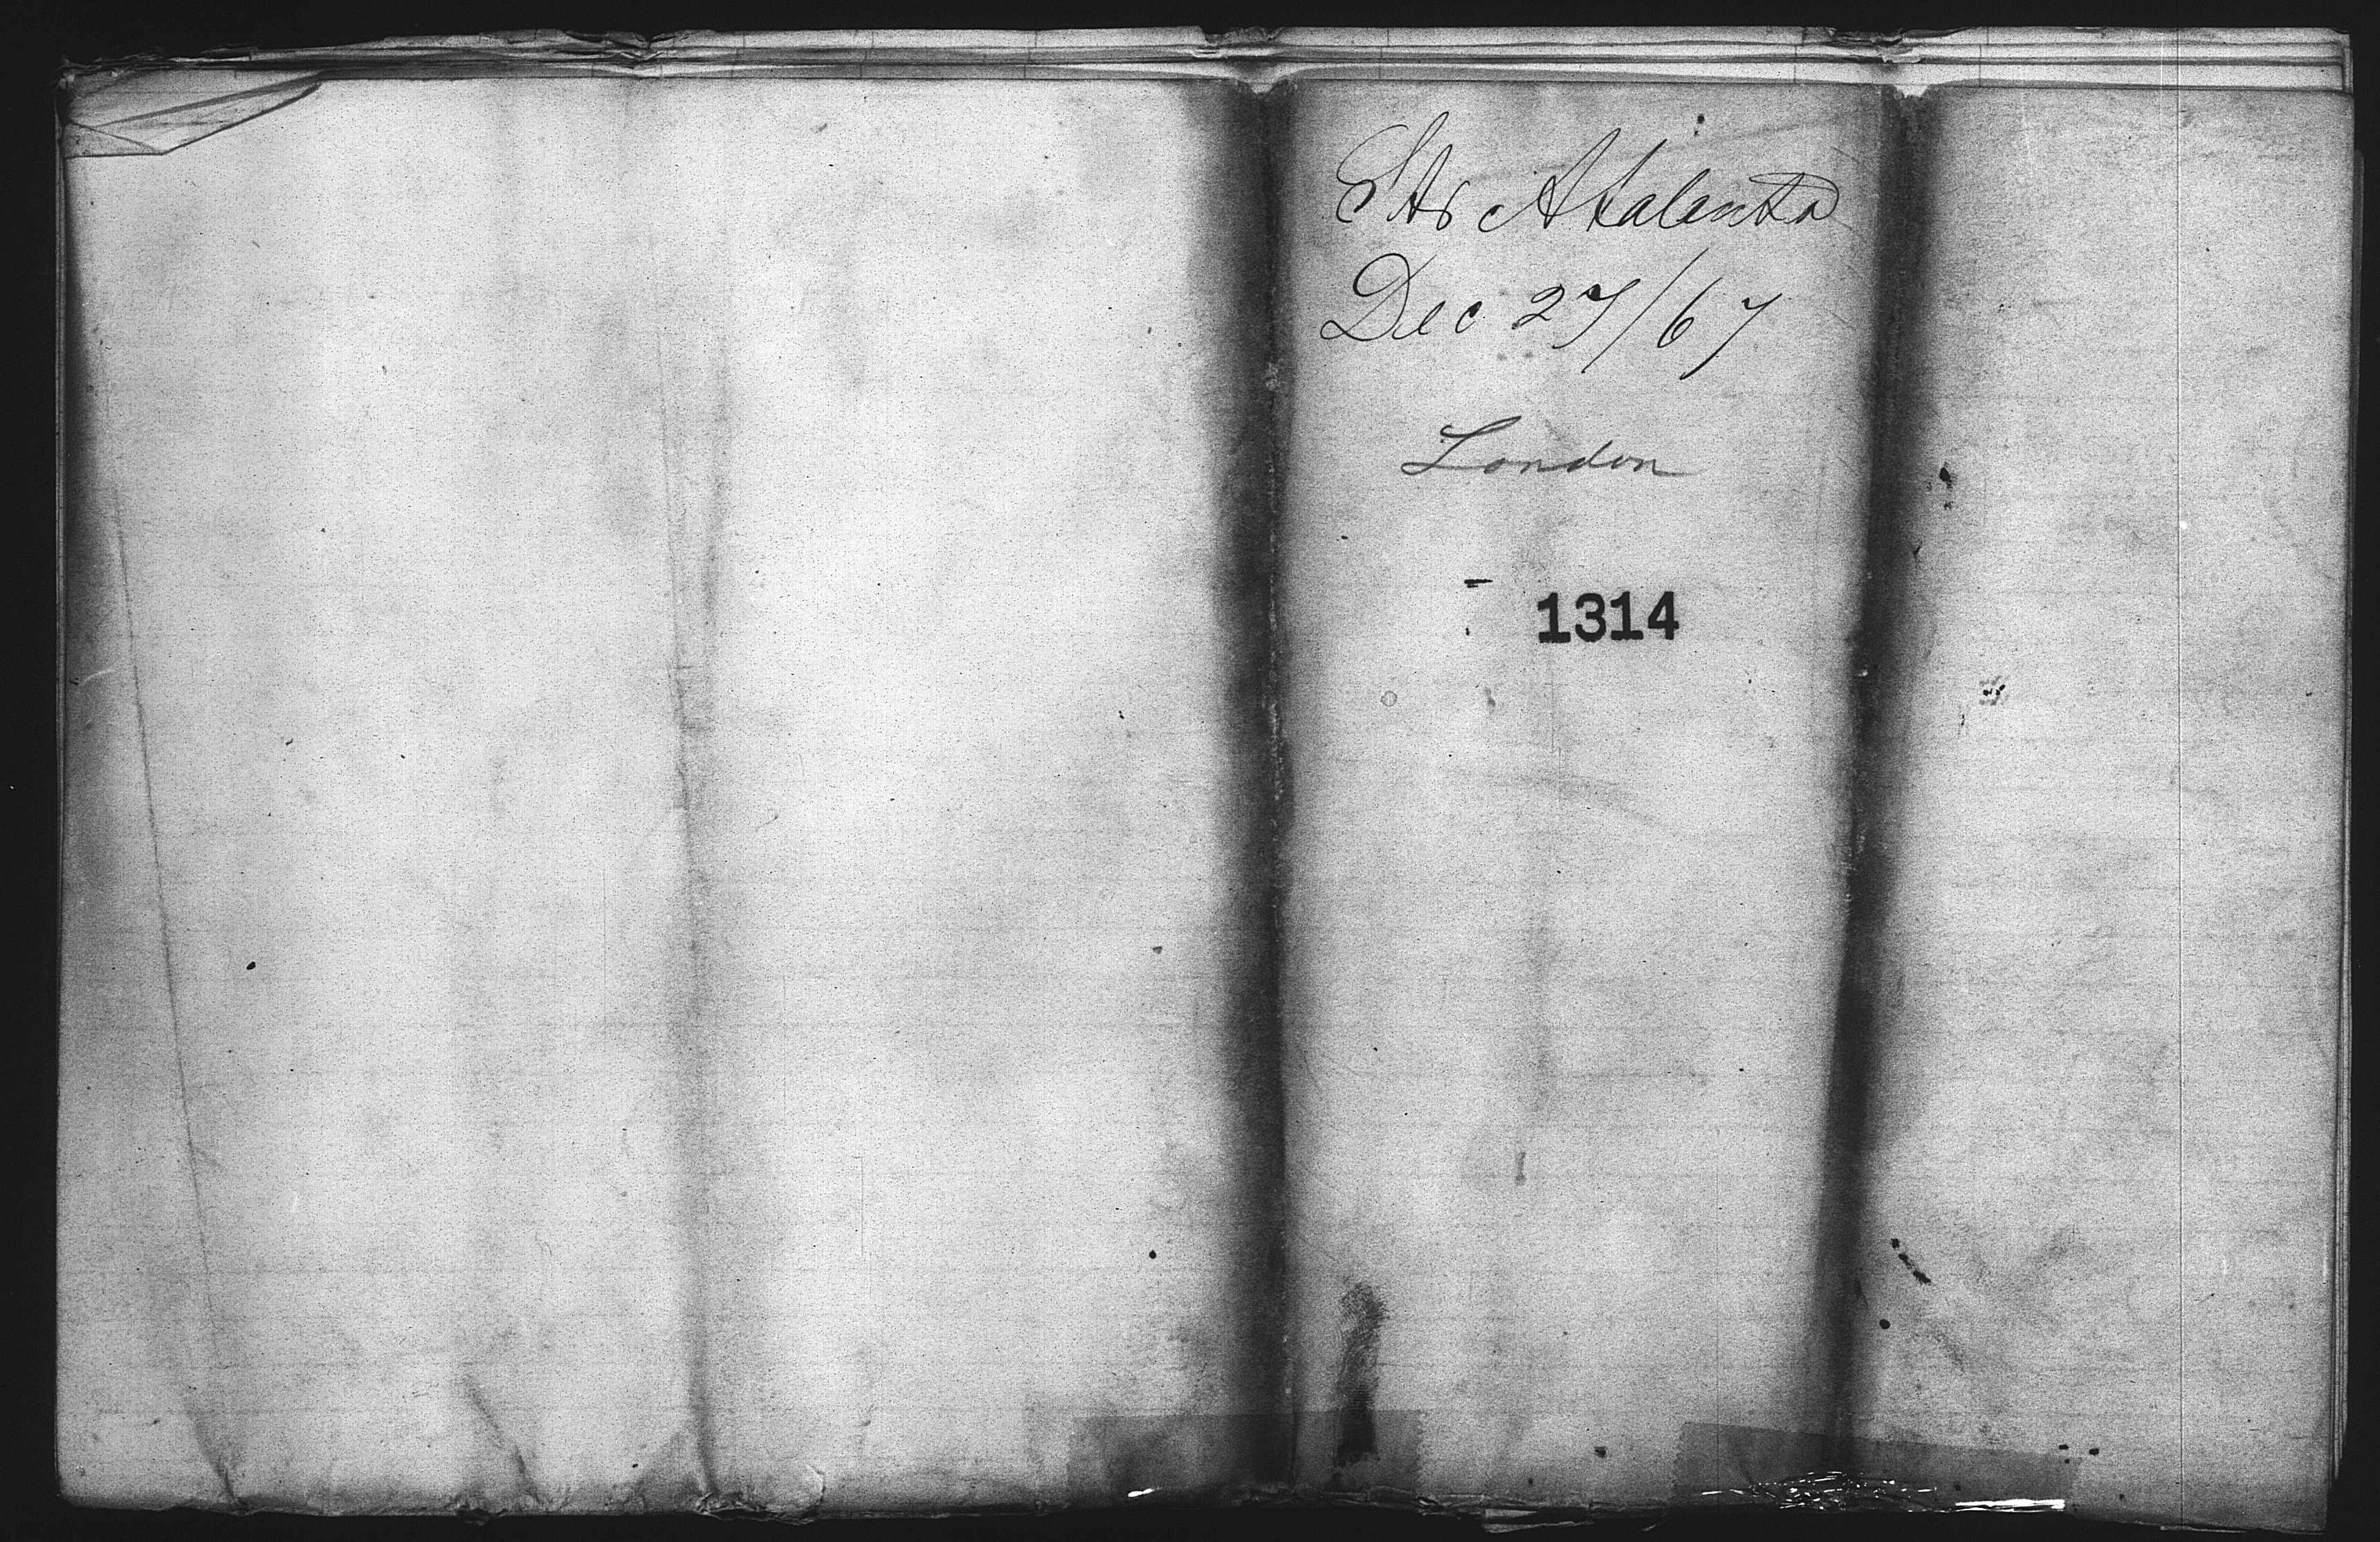 Str Atalanta
Dec 27/67
London
1314